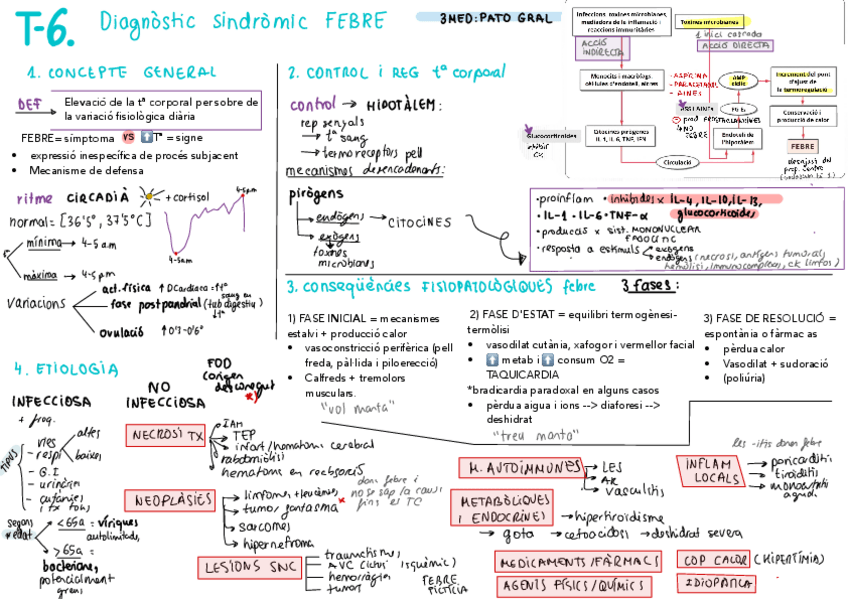 T-6. Diagnòstic sindròmic FEBRE
3MED: PATO GRAL
Infeccions, toxines microbianes,
mediadors de la inflamació i
reaccions immunitàries
Toxines microbianes
ACCIÓ
INDIRECTA
ACCIÓ DIRECTA
Monòcits i macròfags
cèl·lules d'endoteli, altres
- ASPIRINA
- PARACETAMOL
- AINES
AMP
cíclic
Increment del punt
d'ajust de
la termoregulació
PG E₂
Conservació i
producció de calor
FEBRE
Glucocorticoides
Citocines pirògenes
IL 1, IL 6, TNF, IFN
Endoteli de
l'hipotàlem
Circulació
1. CONCEPTE GENERAL
DEF
Elevació de la tª corporal per sobre de
la variació fisiològica diària
FEBRE= símptoma vs ⬆Tª = signe
• expressió inespecífica de procés subjacent
• Mecanisme de defensa
ritme CIRCADIÀ + cortisol
4-5p.m
4-5am
normal = [36'5°, 37'5°C]
mínima → 4-5 a.m
màxima → 4-5 pm
variacions
act. física ↑DCardíaca = ↑tª
fase postpandrial (tub digestiu)
ovulació ↑0'3-0'6°
2. CONTROL i REG tª corporal
control → HIPOTÀLEM:
rep senyals
→ tª sang
→ termoreceptors pell
mecanismes desencadenants:
pirògens
→ endògens → CITOCINES
→ exògens
toxines
microbianes
• proinflam • inhibides x IL-4, IL-10, IL-13,
glucocorticoides
• IL-1 • IL-6 • TNF-α
• produccas x sist. MONONUCLEAR
FAGOCÍTIC
• resposta a estímuls exògens
endògens (necrosi, antígens tumorals,
hemòlisi, immunocomplexes, ck limfos)
3. conseqüències FISIOPATOLÒGIQUES febre 3 fases:
1) FASE INICIAL = mecanismes
estalvi + producció calor
• vasoconstricció perifèrica (pell
freda, pàl·lida i piloerecció)
• Calfreds + tremolors
musculars.
"vol manta"
2) FASE D'ESTAT = equilibri termogènesi-
termòlisi
• vasodilat cutània, xafogor i vermellor facial
• ⬆ metab i ⬆ consum O2 =
TAQUICARDIA
*bradicardia paradoxal en alguns casos
• pèrdua aigua i ions --> diaforesi -->
deshidrat
"treu manta"
3) FASE DE RESOLUCIÓ =
espontània o fàrmacs
• pèrdua calor
• Vasodilat + sudoració
• (poliúria)
4. ETIOLOGIA
INFECCIOSA
+ freq.
TIPUS
- vies
respi
altes
baixes
- G.I
- urinàries
- cutànies
i tx tous
segons
edat
<65a = víriques
autolimitades
>65a =
bacterianes,
potencialment
greus
NO
INFECCIOSA
FOD
(origen
desconegut
*)
NECROSI TX
IAM
TEP
infart/hematoma cerebral
rabdomiòlisi
hematoma en reabsorció
NEOPLÀSIES
limfomes, +leucèmies
tumor fantasma
sarcomes
hipernefroma
dona febre i
no se sap la causa
fins el TC
LESIONS SNC
traumatismes
AVC (ictus isquèmic)
hemorràgies
tumors
FEBRE
FICTÍCIA
M. AUTOIMMUNES
LES
AR
vasculitis
METABÒLIQUES
I ENDOCRINES
→ hipertiroïdisme
→ gota → cetoacidosi → deshidrat severa
MEDICAMENTS/FÀRMACS
AGENTS FÍSICS/QUÍMICS
les -itis donen febre
INFLAM
LOCALS
→ pericarditis
→ tiroïditis
COP CALOR (HIPERTÈRMIA)
IDIOPÀTICA